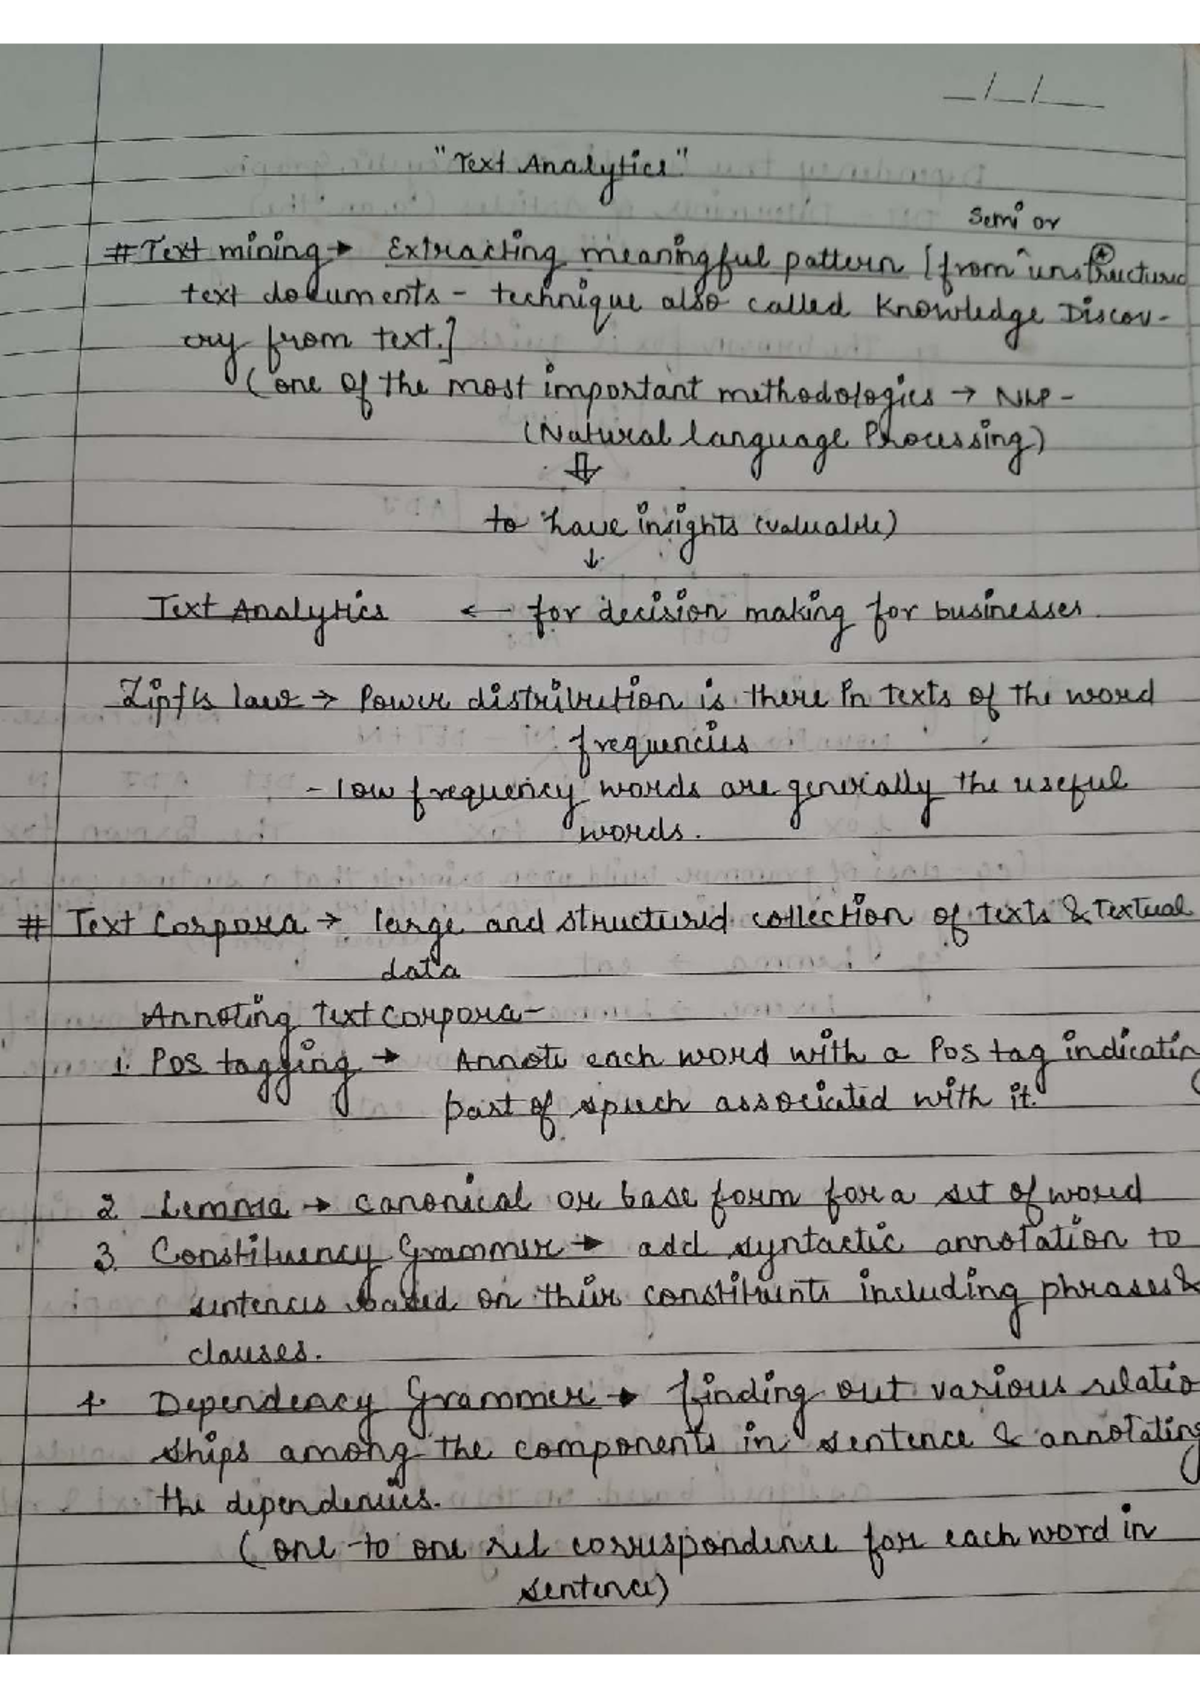 _/_/__
"Text Analytics"
Semi or
# Text mining → Extracting meaningful pattern [from ^ unstructured
text documents - technique also called Knowledge Discov-
ery from text.]
(one of the most important methodologies → NLP -
(Natural language Processing)
⇓
to have insights (valuable)
↓
Text Analytics ← for decision making for businesses.
Zipf's law → Power distribution is there in texts of the word
frequencies
- low frequency words are generally the useful
words.
# Text Corpora → large and structured collection of texts & Textual
data
Annoting Text Corpora-
1. POS tagging → Annote each word with a Pos tag indicating
part of speech associated with it.
2. Lemma → canonical or base form for a set of word
3. Constituency Grammer → add syntactic annotation to
sentences based on their constituents including phrases &
clauses.
4. Dependency Grammer → finding out various relatio
ships among the components in sentence & annotating
the dependencies.
(one-to one rel correspondence for each word in
sentence)